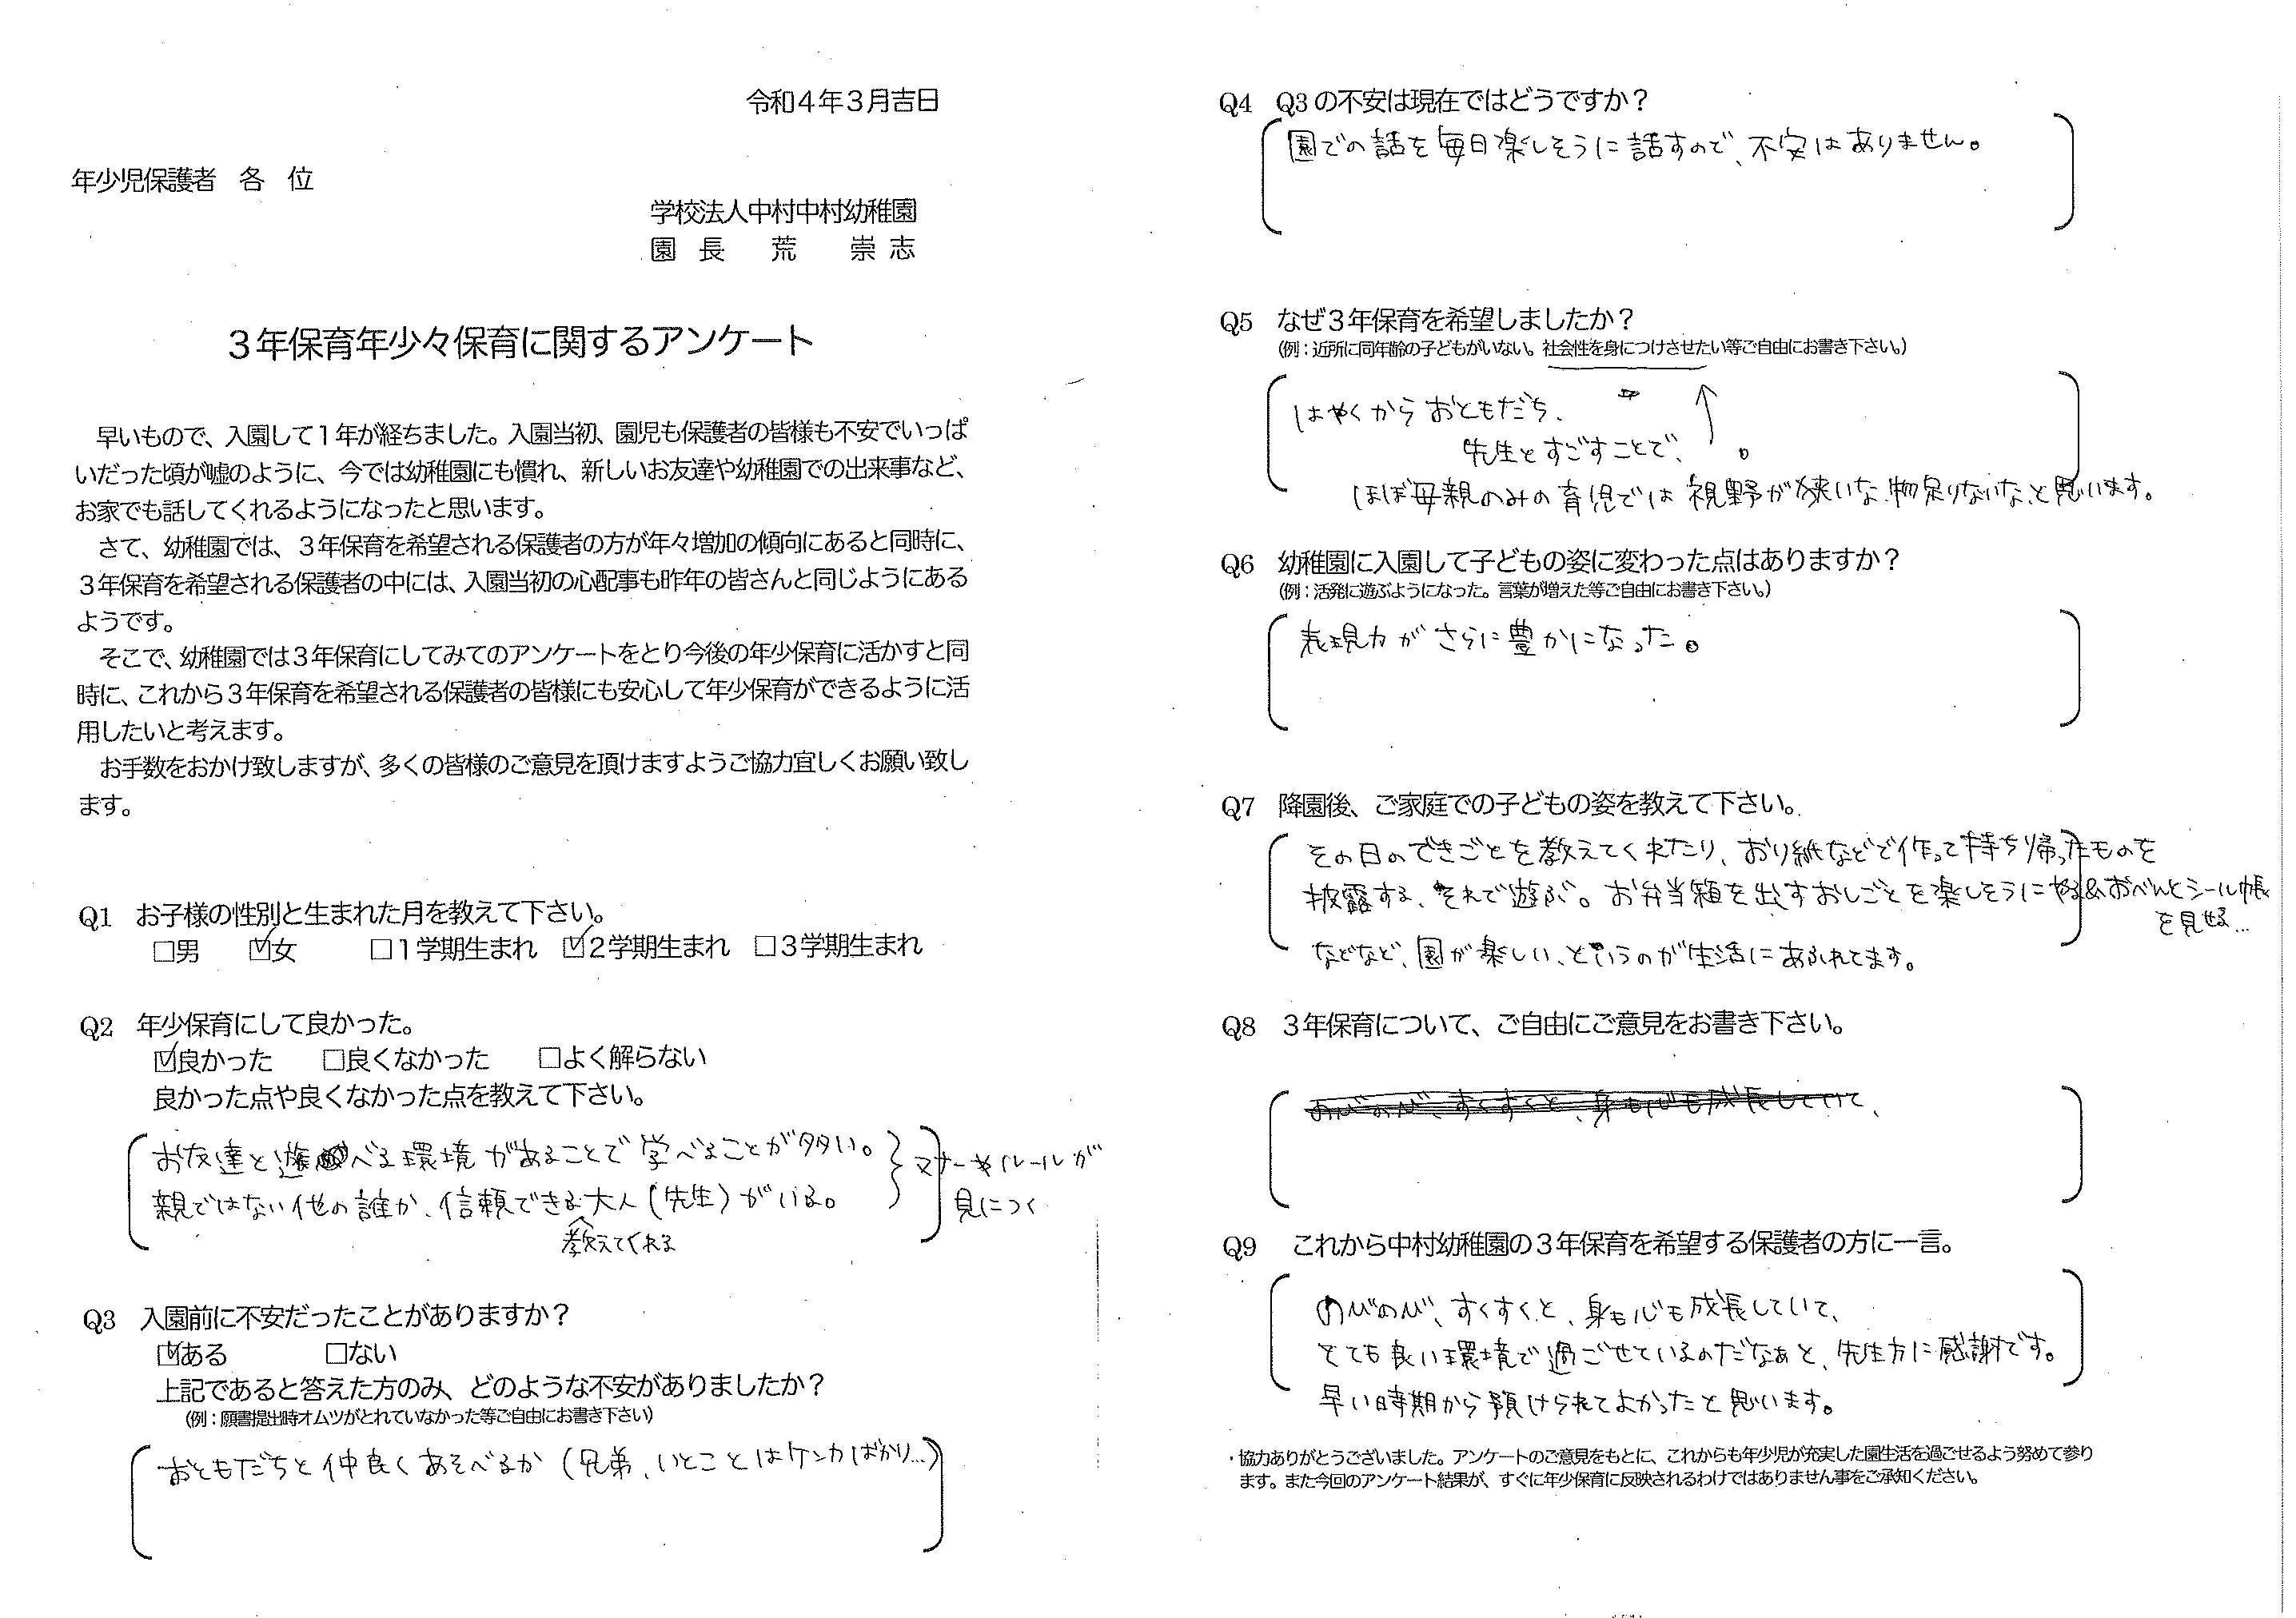 令和４年３月吉日
年少児保護者　各　位
学校法人中村中村幼稚園
園　長　　荒　　崇　志
３年保育年少々保育に関するアンケート
早いもので、入園して１年が経ちました。入園当初、園児も保護者の皆様も不安でいっぱ
いだった頃が嘘のように、今では幼稚園にも慣れ、新しいお友達や幼稚園での出来事など、
お家でも話してくれるようになったと思います。
さて、幼稚園では、３年保育を希望される保護者の方が年々増加の傾向にあると同時に、
３年保育を希望される保護者の中には、入園当初の心配事も昨年の皆さんと同じようにある
ようです。
そこで、幼稚園では３年保育にしてみてのアンケートをとり今後の年少保育に活かすと同
時に、これから３年保育を希望される保護者の皆様にも安心して年少保育ができるように活
用したいと考えます。
お手数をおかけ致しますが、多くの皆様のご意見を頂けますようご協力宜しくお願い致し
ます。
Q1　お子様の性別と生まれた月を教えて下さい。
□男　☑女　□１学期生まれ　☑２学期生まれ　□３学期生まれ
Q2　年少保育にして良かった。
☑良かった　□良くなかった　□よく解らない
良かった点や良くなかった点を教えて下さい。
お友達と遊べる環境があることで学べることが多い。
親ではない他の誰か、信頼できる大人（先生）がいる。
教えてくれる
マナーやルールが
見につく
Q3　入園前に不安だったことがありますか？
☑ある　□ない
上記であると答えた方のみ、どのような不安がありましたか？
（例：願書提出時オムツがとれていなかった等ご自由にお書き下さい）
おともだちと仲良くあそべるか（兄弟、いとことはケンカばかり…）
Q4　Q3の不安は現在ではどうですか？
園での話を毎日楽しそうに話すので、不安はありません。
Q5　なぜ３年保育を希望しましたか？
（例：近所に同年齢の子どもがいない。社会性を身につけさせたい等ご自由にお書き下さい。）
はやくからおともだち、
先生とすごすことで、↑。
ほぼ母親のみの育児では視野が狭いな、物足りないな、と思います。
Q6　幼稚園に入園して子どもの姿に変わった点はありますか？
（例：活発に遊ぶようになった。言葉が増えた等ご自由にお書き下さい。）
表現力がさらに豊かになった。
Q7　降園後、ご家庭での子どもの姿を教えて下さい。
その日のできごとを教えてくれたり、おり紙などで作って持ち帰ったものを
披露する、それで遊ぶ。お弁当箱を出すおしごとを楽しそうにやる&おべんとシール帳
を見せる…
などなど、園が楽しい、というのが生活にあふれてます。
Q8　３年保育について、ご自由にご意見をお書き下さい。
のびのび、すくすくと、身も心も成長していて、
Q9　これから中村幼稚園の３年保育を希望する保護者の方に一言。
のびのび、すくすくと、身も心も成長していて、
とても良い環境で過ごせているのだなぁと、先生方に感謝です。
早い時期から預けられてよかったと思います。
・協力ありがとうございました。アンケートのご意見をもとに、これからも年少児が充実した園生活を過ごせるよう努めて参り
ます。また今回のアンケート結果が、すぐに年少保育に反映されるわけではありません事をご承知ください。